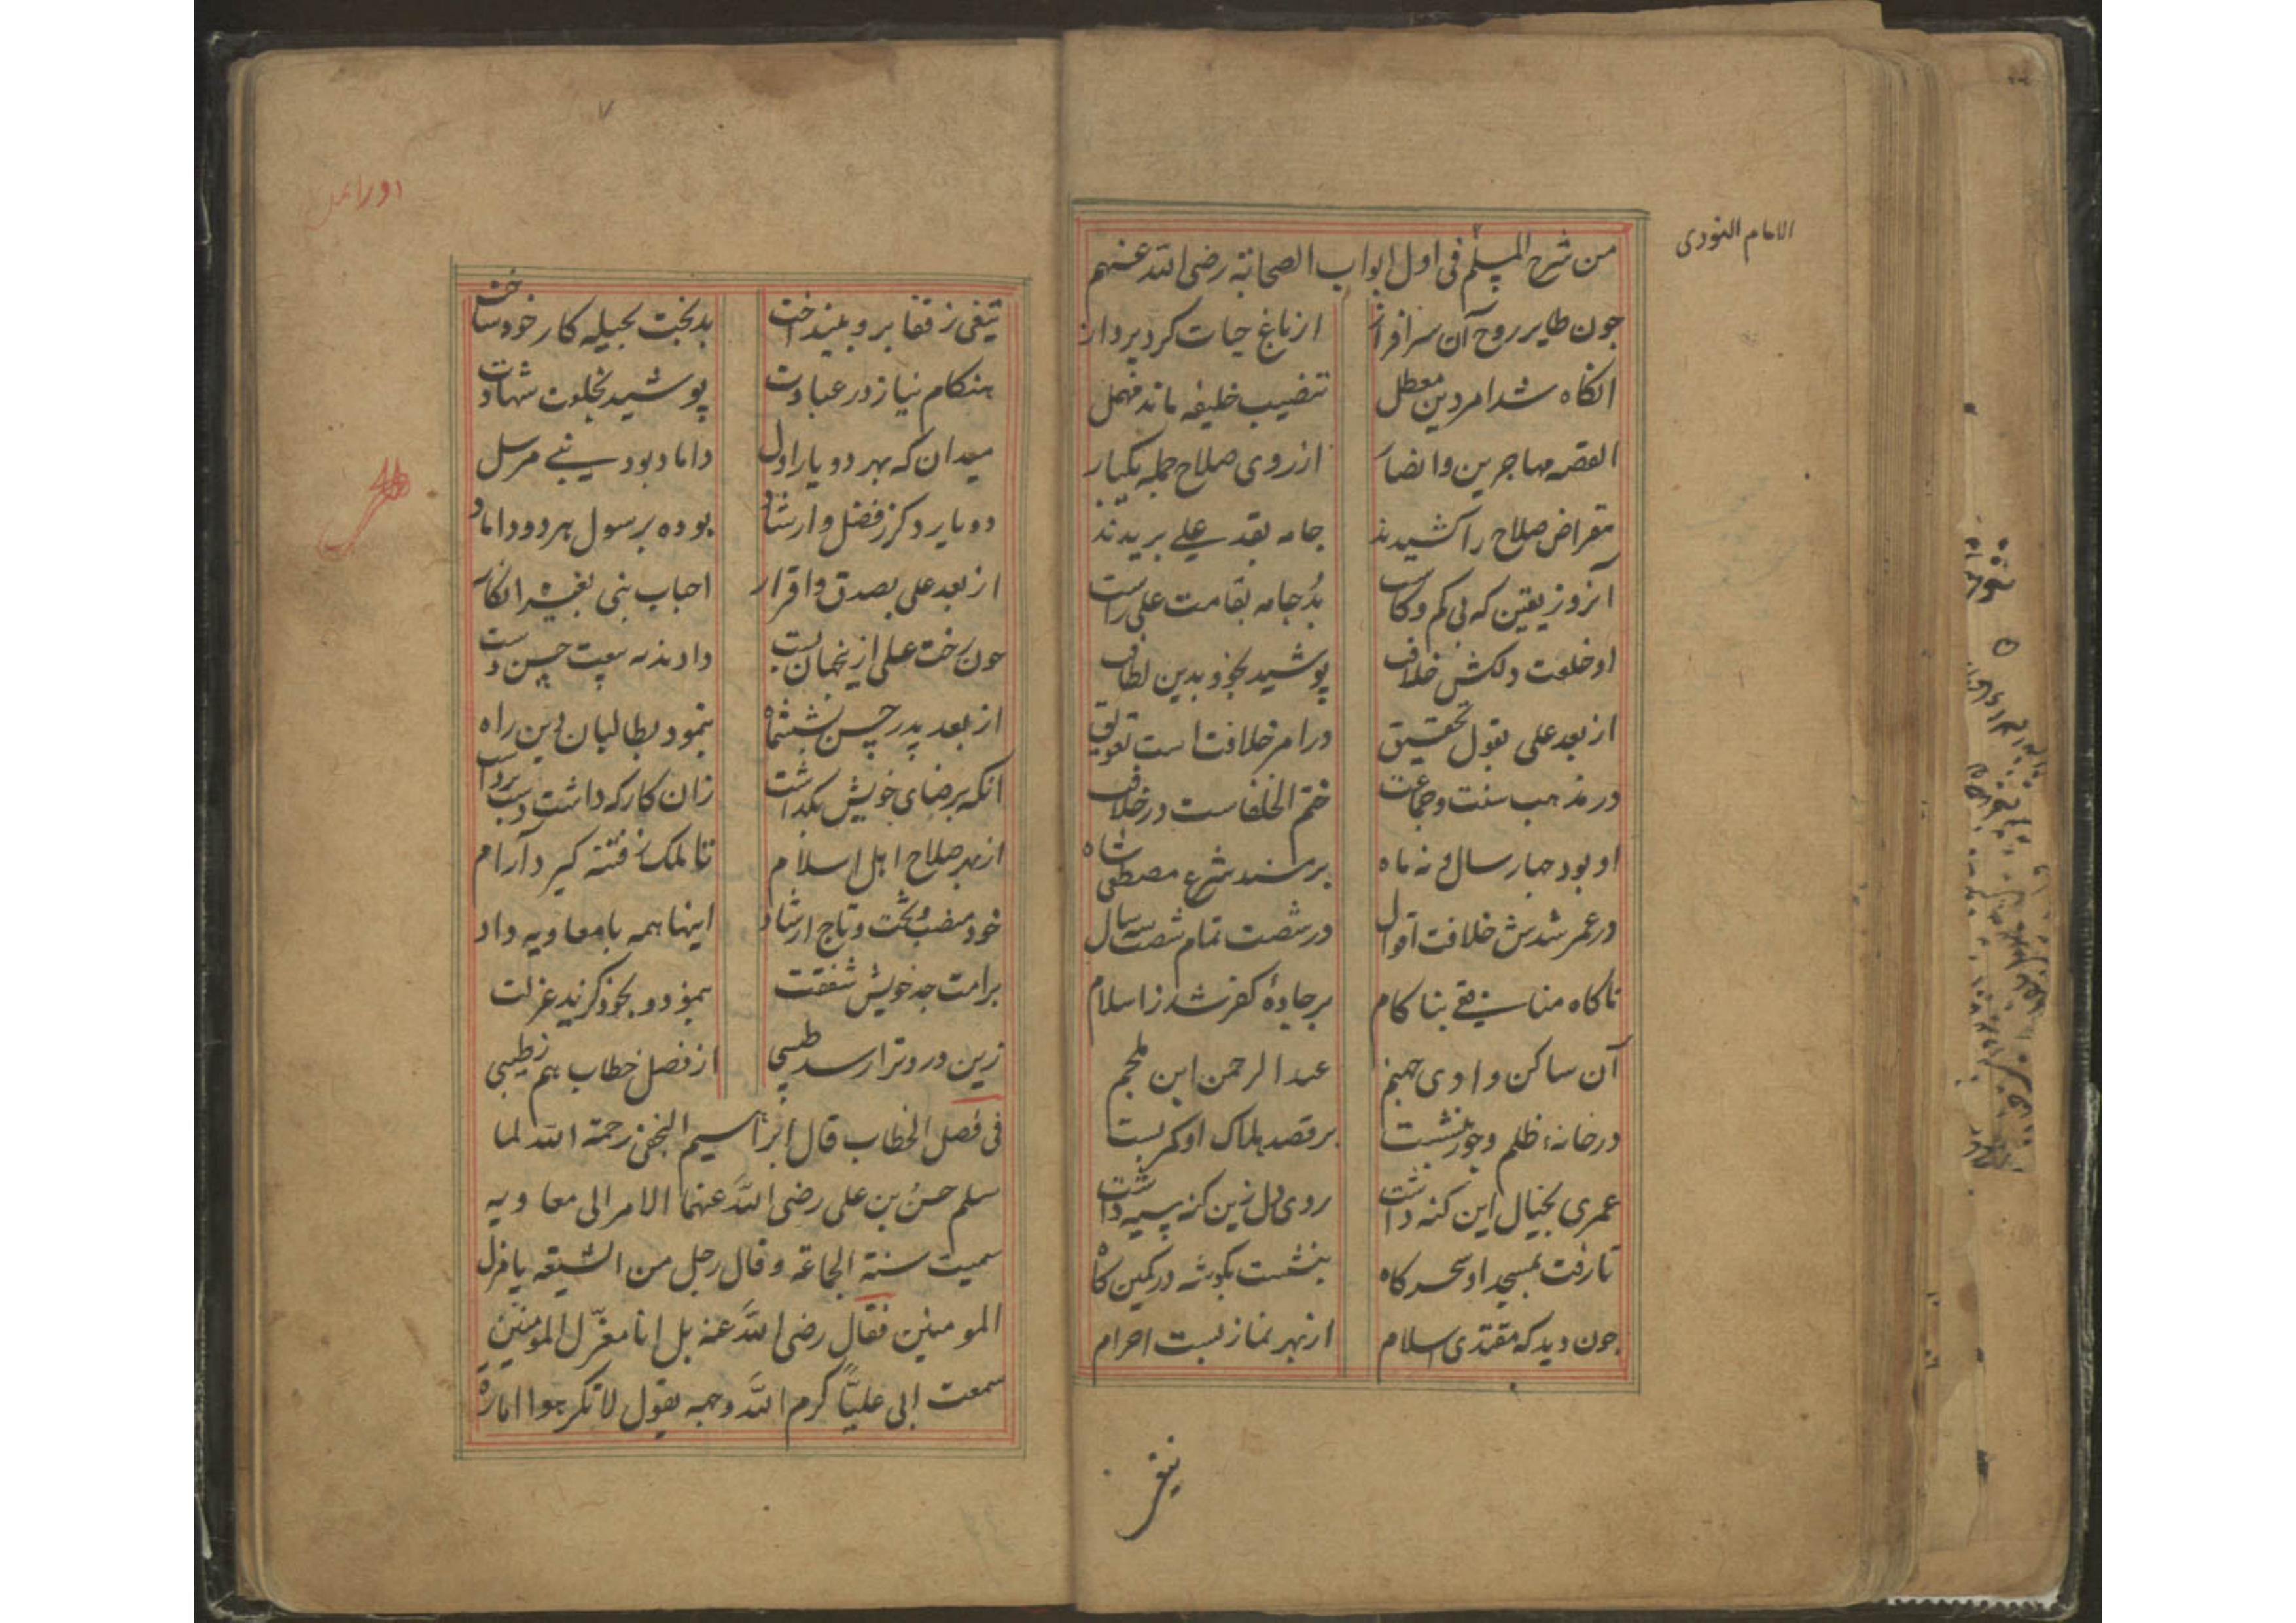 الامام النووی
من شرح المسلم فی اول ابواب الصحابة رضی الله عنهم
جون طایر روح آن سرافراز از باغ حیات کرد پرواز
انکاه شد امر دین معطل تنصیب خلیفه ماند مهمل
القصه مهاجرین و انصار از روی صلاح جمله یکبار
مقراض صلاح را کشیدند جامه بقد علی بریدند
آنروز یقین که بی کم و کاست بُد جامه بقامت علی راست
او خلعت دلکش خلافت پوشید بخود بدین لطافت
از بعد علی بقول تحقیق در امر خلافت است تعویق
در مذهب سنت و جماعت ختم الخلفاست در خلافت
او بود جهار سال و نه ماه بر مسند شرع مصطفی شاه
در عمر شدش خلافت اقوال در شصت تمام شصت سه سال
ناکاه منافقی بناکام بر جادهٔ کفر شد ز اسلام
آن ساکن وادی جهنم عبدالرحمن ابن ملجم
در خانهٔ ظلم و جور بنشست بر قصد هلاک او کمر بست
عمری بخیال این کنه داشت روی دل ازین کنه سیه داشت
تا رفت بمسجد او سحرکاه بنشست بکوشه در کمین کاه
جون دید که مقتدی اسلام از بهر نماز بست احرام
تیغی ز قفا برو بینداخت بدبخت بحیله کار خود ساخت
هنکام نیاز در عبادت پوشید بخلعت شهادت
میدان که بهر دو یار اول داماد بود نبی مرسل
دو یار دکر ز فضل و ارشاد بوده برسول هر دو داماد
از بعد علی بصدق و اقرار احباب نبی بغیر انکار
جون رخت علی ازین جهان بست دادند به بیعت حسن دست
از بعد پدر حسن نشست شاه بنمود بطالبان دین راه
انکه برضای خویش بکذاشت زان کار که داشت دست برداشت
از بهر صلاح اهل اسلام تا ملک ز فتنه کیرد آرام
خود منصب و تخت و تاج ارشاد اینها همه با معاویه داد
بر امت جد خویش شفقت بنمود و بخود کزید عزلت
زین درد و ترا رسد طبیبی از فصل خطاب هم
فی فصل الخطاب قال ابراهیم النخعی رحمة الله لما
سلم حسنُ بن علی رضی الله عنهما الامر الی معاویه
سمیت سنة الجماعة و قال رجل من الشیعه یا مذل
المومنین فقال رضی الله عنه بل انا معزّ ل المومنین
سمعت ابی علیّاً کرم الله وجهه یقول لا تکرهوا امارة